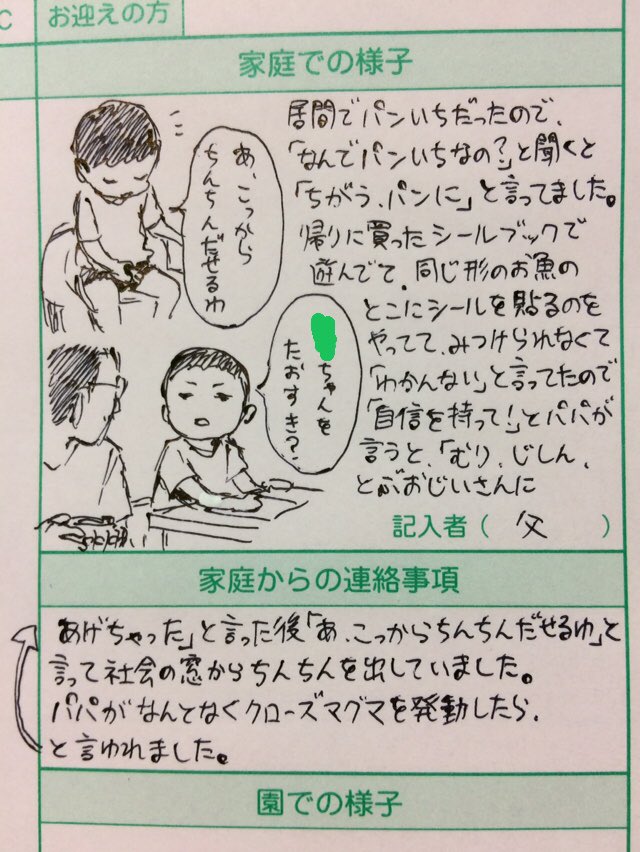 C
お迎えの方
家庭での様子
居間でパンいちだったので、
「なんでパンいちなの?」と聞くと
「ちがう、パンに」と言ってました。
帰りに買ったシールブックで
遊んでて、同じ形のお魚の
とこにシールを貼るのを
やってて、みつけられなくて
「わかんない」と言ってたので
「自信を持って!」とパパが
言うと、「むり、じしん、
とぶおじいさんに
あ、こっから
ちんちんだせるわ
ちゃんを
たおすき?
記入者( 父 )
家庭からの連絡事項
あげちゃった」と言った後「あ、こっからちんちんだせるゆ」と
言って社会の窓からちんちんを出していました。
パパがなんとなくクローズマグマを発動したら、
と言ゆれました。
園での様子